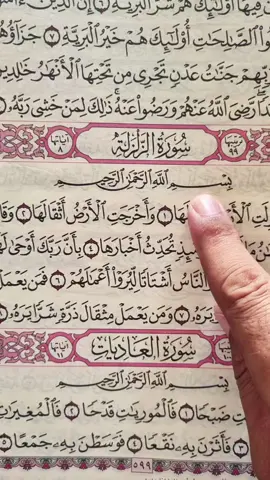 فِيهَا أُو۟لَٰٓئِكَ هُمْ شَرُّ ٱلْبَرِيَّةِ ٦ إِنَّ ٱلَّذِينَ
ٱلصَّٰلِحَٰتِ أُو۟لَٰٓئِكَ هُمْ خَيْرُ ٱلْبَرِيَّةِ ٧ جَزَآؤُهُمْ
جَنَّٰتُ عَدْنٍ تَجْرِى مِن تَحْتِهَا ٱلْأَنْهَٰرُ خَٰلِدِينَ
رَّضِىَ ٱللَّهُ عَنْهُمْ وَرَضُوا۟ عَنْهُ ذَٰلِكَ لِمَنْ خَشِىَ رَبَّهُۥ
ترتيبها ٩٩ سُورَةُ الزَّلْزَلَةِ آياتها ٨
بِسْمِ ٱللَّهِ ٱلرَّحْمَٰنِ ٱلرَّحِيمِ
١ وَأَخْرَجَتِ ٱلْأَرْضُ أَثْقَالَهَا ٢ وَقَا
تُحَدِّثُ أَخْبَارَهَا ٤ بِأَنَّ رَبَّكَ أَوْحَىٰ
ٱلنَّاسُ أَشْتَاتًا لِّيُرَوْا۟ أَعْمَٰلَهُمْ ٦ فَمَن يَعْمَلْ
يَرَهُۥ ٧ وَمَن يَعْمَلْ مِثْقَالَ ذَرَّةٍ شَرًّا يَرَهُۥ
سُورَةُ العَادِيَاتِ آياتها ١١
بِسْمِ ٱللَّهِ ٱلرَّحْمَٰنِ ٱلرَّحِيمِ
ضَبْحًا ١ فَٱلْمُورِيَٰتِ قَدْحًا ٢ فَٱلْمُغِيرَٰتِ
٣ فَأَثَرْنَ بِهِۦ نَقْعًا ٤ فَوَسَطْنَ بِهِۦ جَمْعًا ٥
٥٩٩